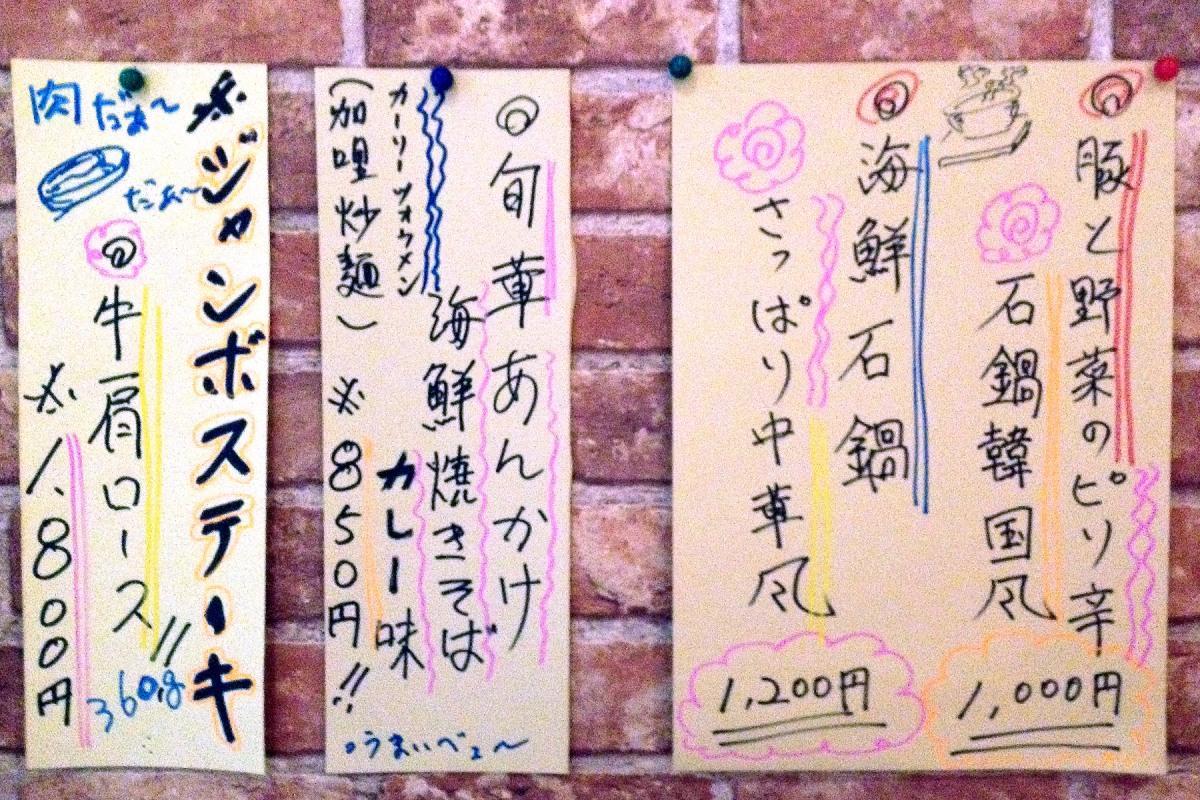 豚と野菜のピリ辛
石鍋韓国風
1,000円
海鮮石鍋
さっぱり中華風
1,200円
旬菜あんかけ
海鮮焼きそば
カレー味
カーリーツァウメン
(加哩炒麺)
※850円!!
うまいべェ〜
※ジャンボステーキ
肉だぁ〜
だぁ〜
牛肩ロース!!
360g
※1,800円